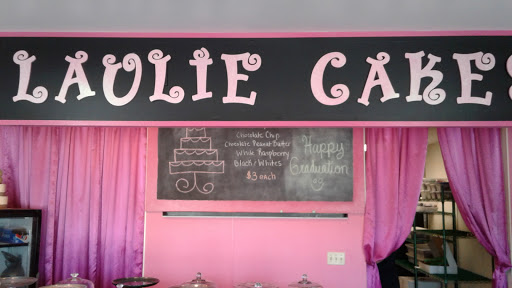 LAULIE CAKES
Chocolate Chip
Chocolate Peanut Butter
White Raspberry
Black & Whites
$3 each
Happy
Graduation